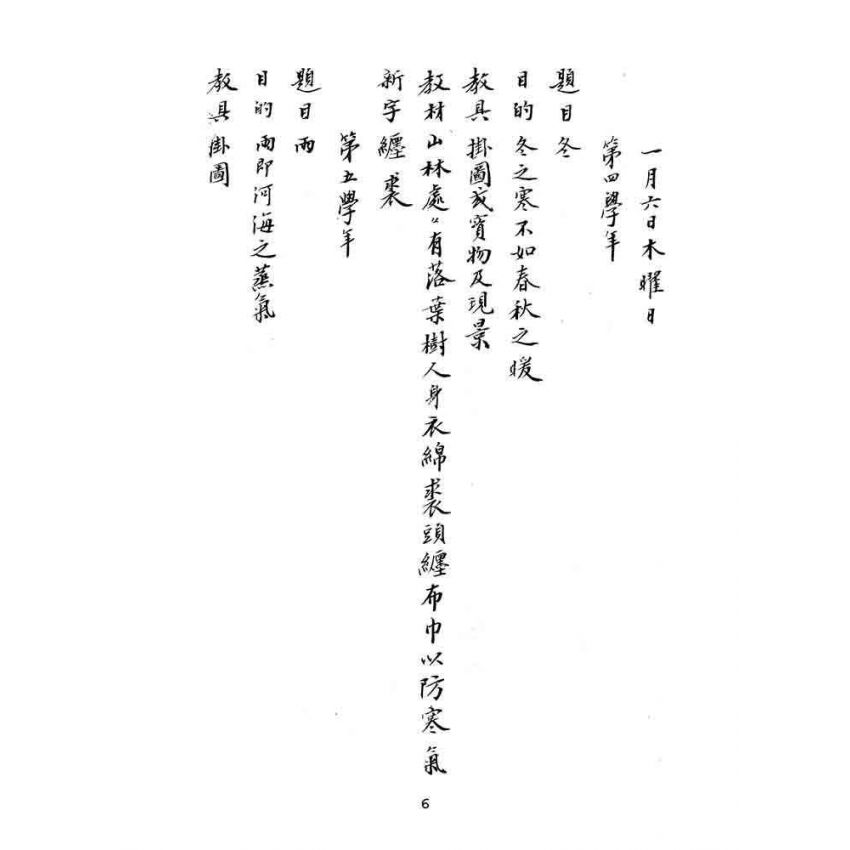 一月六日木曜日
第四學年
題目冬
目的冬之寒不如春秋之暖
教具掛圖或實物及現景
教材山林處〻有落葉樹人身衣綿裘頭纏布巾以防寒氣
新字纏裘
第五學年
題目雨
目的雨即河海之蒸氣
教具掛圖
6